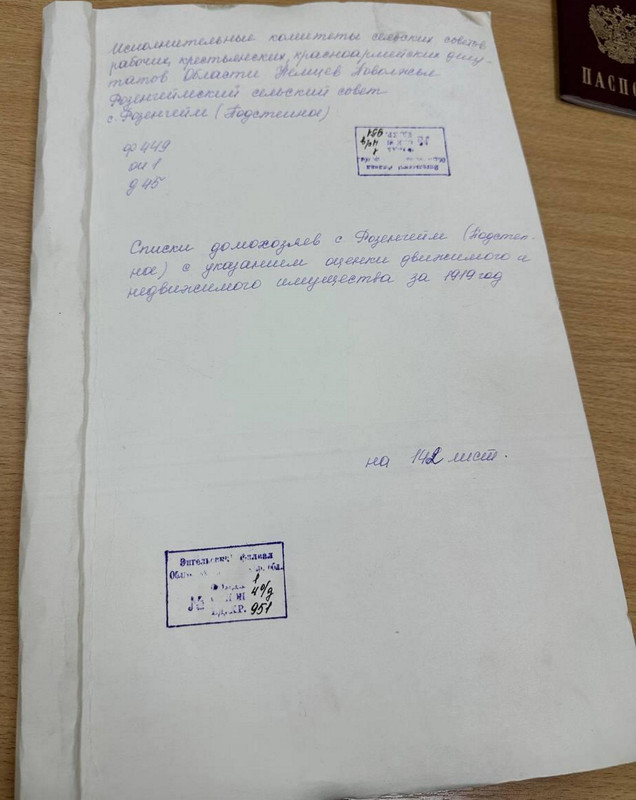 Исполнительные комитеты сельских советов
рабочих, крестьянских, красноармейских депу-
татов Области Немцев Поволжья
Розенгеймский сельский совет
с. Розенгейм (Подстепное)
ф 449
оп 1
д 45
1
49/д
951
Списки домохозяев с Розенгейм (Подстеп-
ное) с указанием оценки движимого и
недвижимого имущества за 1919 год
на 142 лист.
Энгельсский филиал
обл.
1
№ 49/д
ЕД.ХР. 951
ПАСПО